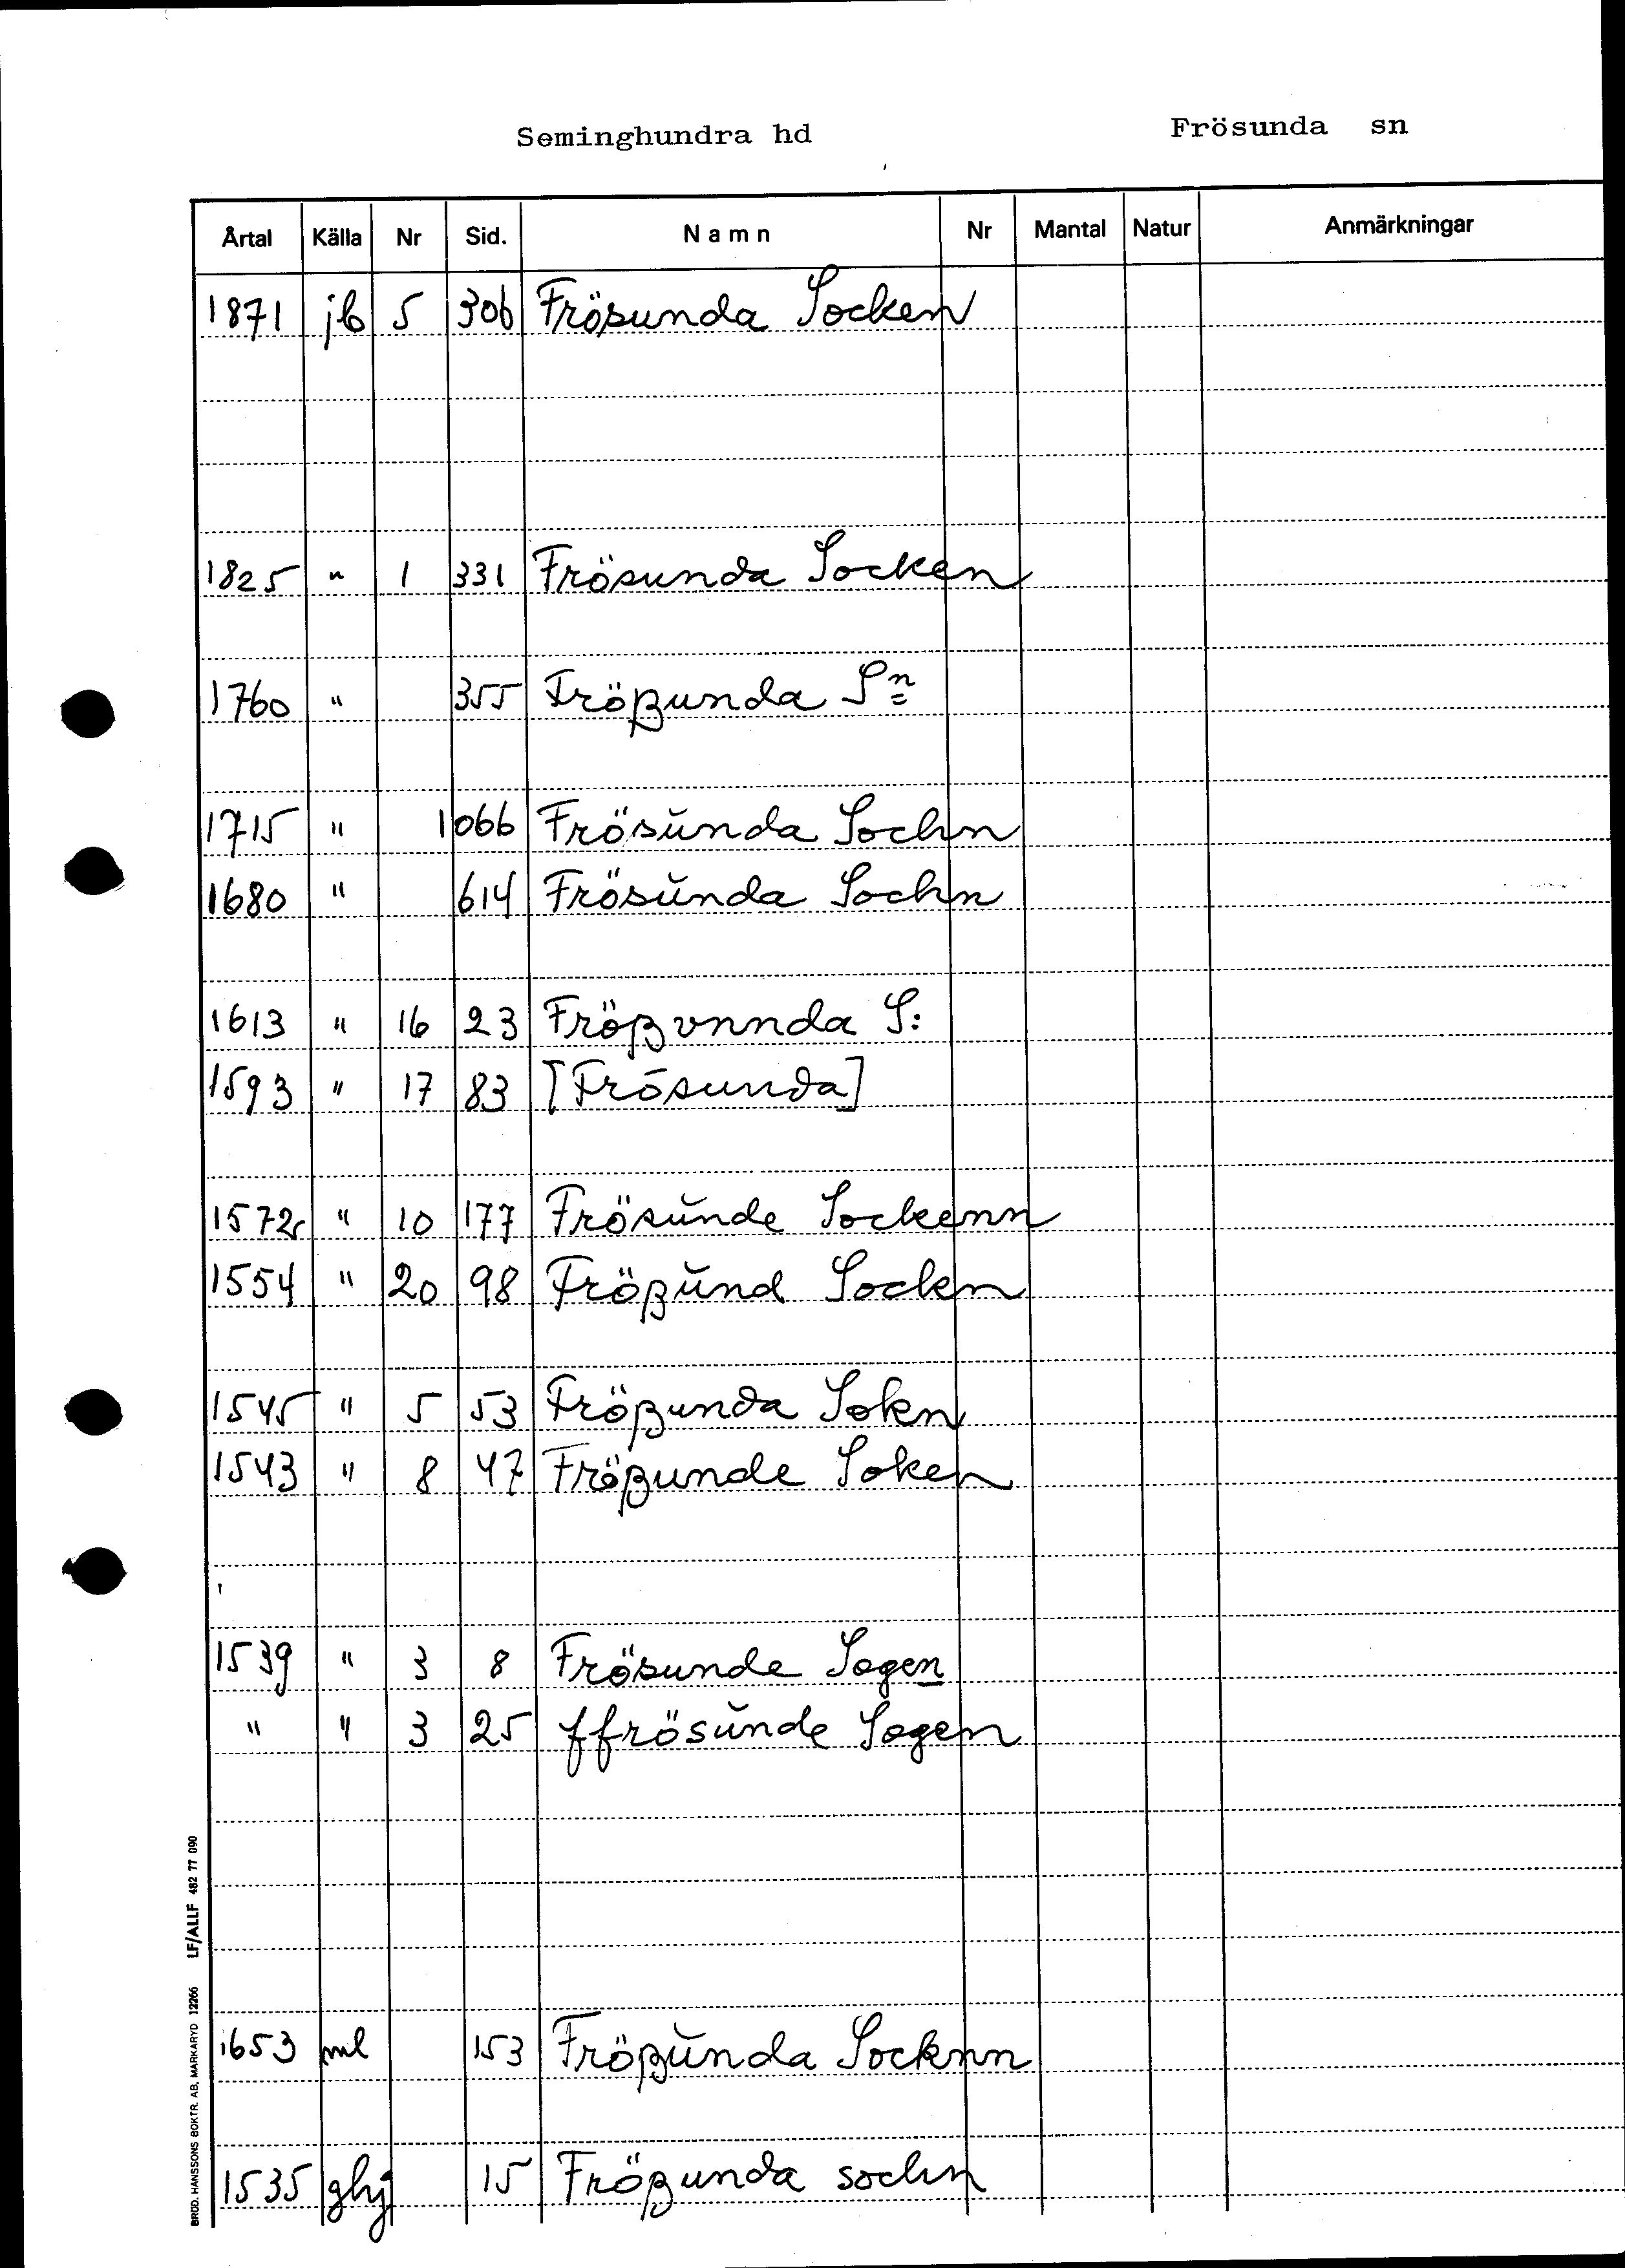 Seminghundra hd Frösunda sn
Årtal Källa Nr Sid. Namn Nr Mantal Natur Anmärkningar
1871 jb 5 306 Frösunda Socken
1825 " 1 331 Frösunda Socken
1760 " 355 Frößunda Sn
1715 " 1066 Frösŭnda Sochn
1680 " 614 Frösŭnda Sochn
1613 " 16 23 Frößvnnda S:
1593 " 17 83 [Frösunda]
1572 " 10 177 Frösŭnde Sockenn
1554 " 20 98 Frößŭnd Sockn
1545 " 5 53 Frößunda Sokn
1543 " 8 47 Frößunde Soken
1539 " 3 8 Frösunde Sogen
" " 3 25 ffrösŭnde Sogen
1653 ml 153 Frößŭnda Socknn
1535 ghj 15 Frößunda sochn
BRÖD. HANSSONS BOKTR. AB, MARKARYD 12266 LF/ALLF 482 77 090